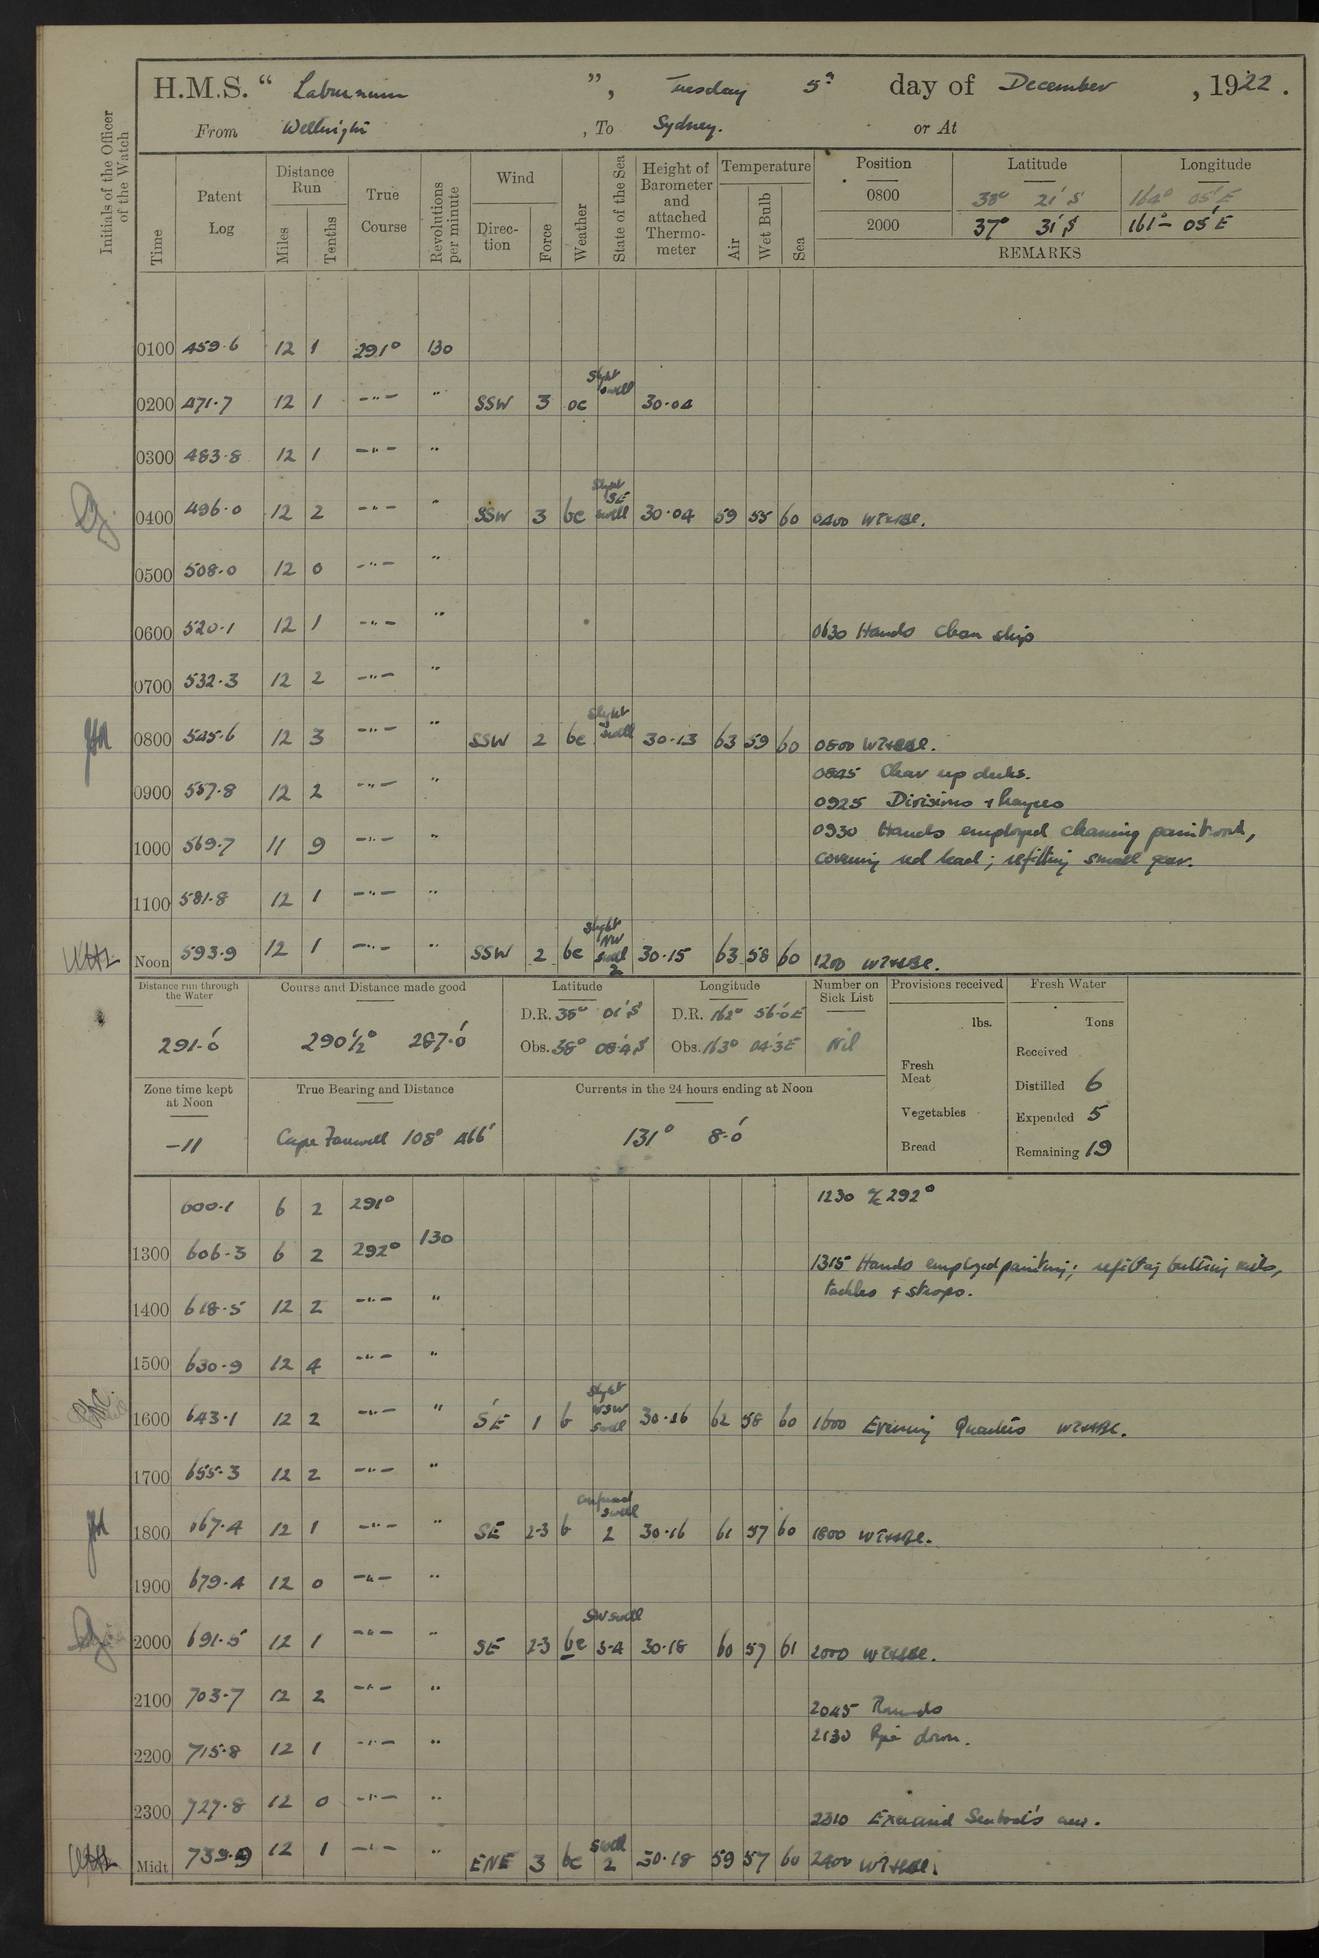 H.M.S. “ Laburnum ”, Tuesday 5th day of December, 1922.
From Wellington, To Sydney. or At
Initials of the Officer of the Watch
Time
Patent Log
Distance Run
Miles
Tenths
True Course
Revolutions per minute
Wind
Direction
Force
Weather
State of the Sea
Height of Barometer and attached Thermometer
Temperature
Air
Wet Bulb
Sea
Position Latitude Longitude
0800 38° 21′ S 164° 05′ E
2000 37° 31′ S 161° 05′ E
REMARKS
0100 459.6 12 1 291° 130
0200 471.7 12 1 —"— " SSW 3 oc Slight swell 30.04
0300 483.8 12 1 —"— "
0400 496.0 12 2 —"— " SSW 3 bc Slight SE swell 30.04 59 55 60 0400 WT&HBC.
0500 508.0 12 0 —"— "
0600 520.1 12 1 —"— "
0630 Hands clean ship
0700 532.3 12 2 —"— "
0800 545.6 12 3 —"— " SSW 2 bc Slight swell 30.13 63 59 60 0800 WT&HBC.
0845 Clear up decks.
0900 557.8 12 2 —"— "
0925 Divisions + Prayers
0930 Hands employed cleaning paintwork,
1000 569.7 11 9 —"— "
covering red lead; refitting small gear.
1100 581.8 12 1 —"— "
Noon 593.9 12 1 —"— " SSW 2 bc Slight NW swell 2 30.15 63 58 60 1200 WT&HBC.
Distance run through the Water
291.0′
Course and Distance made good
290½° 287.0′
Latitude
D.R. 38° 01′ S
Obs. 38° 08.4′ S
Longitude
D.R. 162° 56.0′ E
Obs. 163° 04.3′ E
Number on Sick List
Nil
Provisions received
lbs.
Fresh Meat
Vegetables
Bread
Fresh Water
Tons
Received
Distilled 6
Expended 5
Remaining 19
Zone time kept at Noon
-11
True Bearing and Distance
Cape Farewell 108° 466′
Currents in the 24 hours ending at Noon
131° 8.0′
600.1 6 2 291° 1230 a/c 292°
1300 606.3 6 2 292° 130
1315 Hands employed painting; refitting
tackles + strops.
1400 618.5 12 2 —"— "
1500 630.9 12 4 —"— "
1600 643.1 12 2 —"— " SE 1 b Slight WSW swell 30.16 62 58 60 1600 Evening Quarters WT&HBC.
1700 655.3 12 2 —"— "
1800 667.4 12 1 —"— " SE 2-3 b Confused swell 2 30.16 61 57 60 1800 WT&HBC.
1900 679.4 12 0 —"— "
2000 691.5 12 1 —"— " SE 2-3 bc SW swell 3-4 30.18 60 57 61 2000 WT&HBC.
2100 703.7 12 2 —"— "
2045 Rounds
2130 Pipe down.
2200 715.8 12 1 —"— "
2300 727.8 12 0 —"— "
2310 Exercised Seaboat's crew.
Midt 739.9 12 1 —"— " ENE 3 bc Swell 2 30.18 59 57 60 2400 WT&HBC.